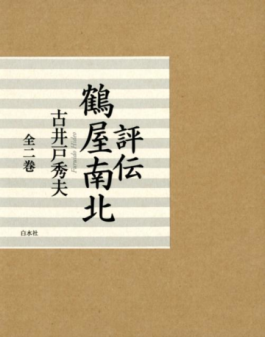 評伝
鶴屋南北
古井戸秀夫
全二巻
白水社